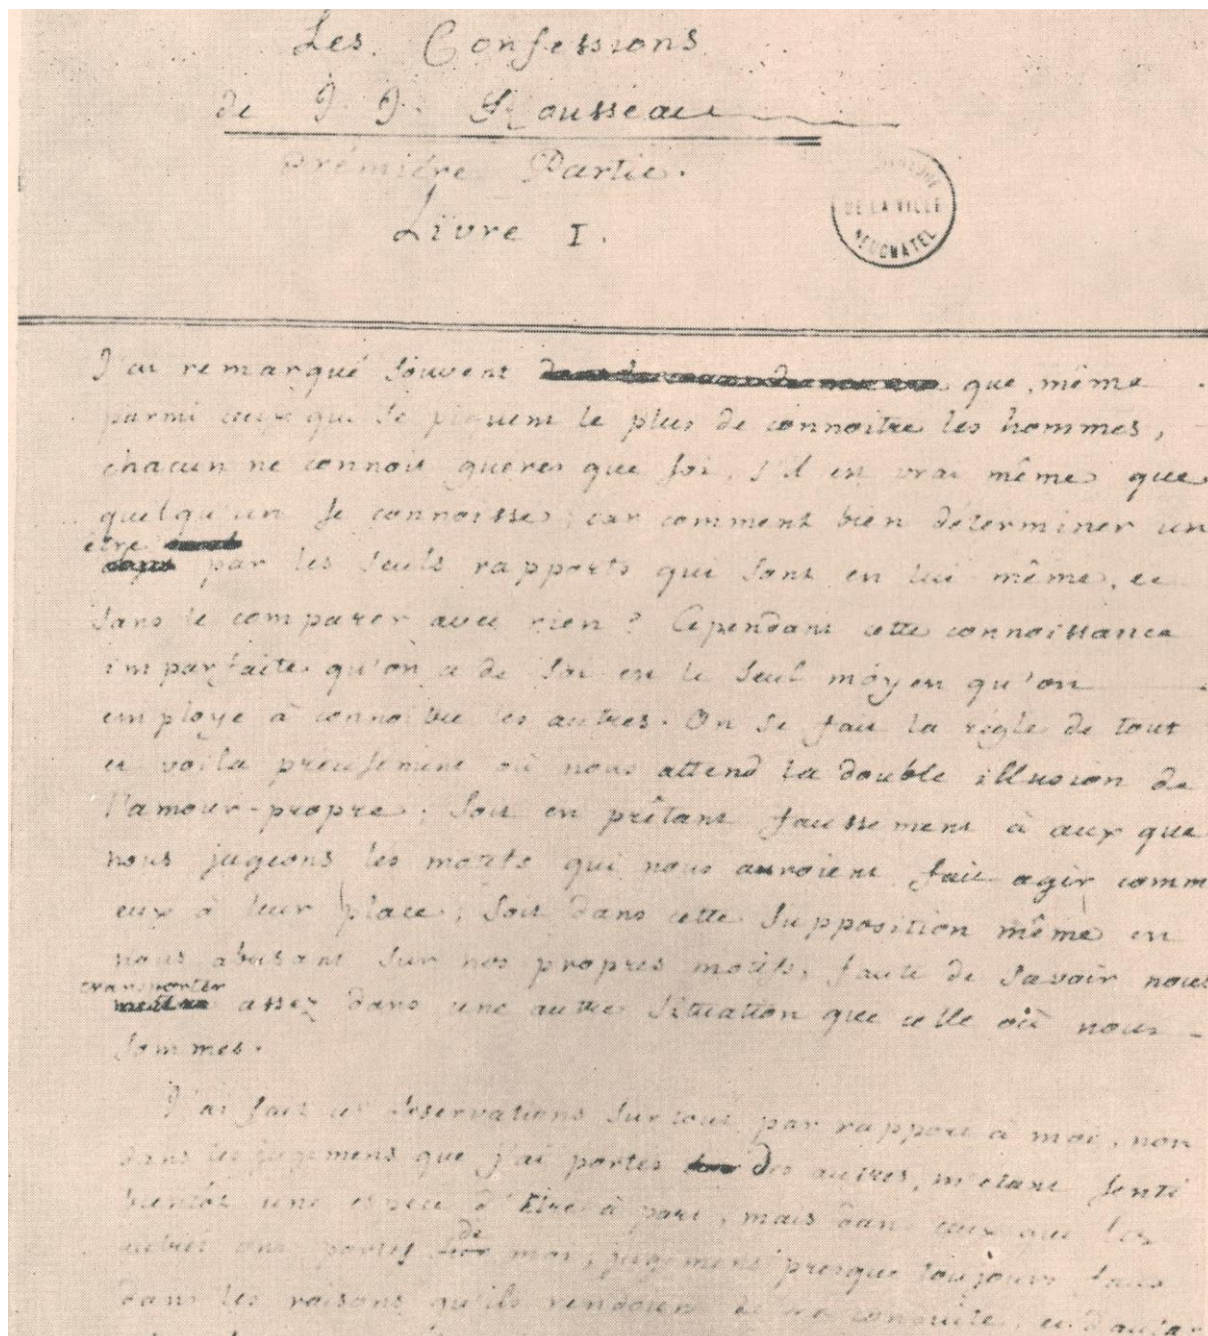 Les Confessions
de J. J. Rousseau
Prémiére Partie.
Livre I.
DE LA VILLE
NEUCHATEL
J'ai remarqué souvent que, même
parmi ceux qui se piquent le plus de connoitre les hommes,
chacun ne connoit guéres que soi, s'il est vrai même que
quelqu'un se connoisse; car comment bien déterminer un
être
par les seuls rapports qui sont en lui même, et
sans le comparer avec rien? Cependant cette connoissance
imparfaite qu'on a de soi est le seul moyen qu'on
employe à connoitre les autres. On se fait la régle de tout
et voila précisément où nous attend la double illusion de
l'amour-propre; soit en prêtant faussement à ceux que
nous jugeons les motifs qui nous auroient fait agir comm
eux à leur place; soit dans cette supposition même en
nous abusant sur nos propres motifs, faute de savoir nous
transporter
assez dans une autre situation que celle où nous
sommes.
J'ai fait ces observations surtout par rapport à moi, non
dans les jugemens que j'ai portés des autres, m'étant senti
bientôt une espéce d'être à part, mais dans ceux que les
de
autres ont portés moi; jugemens presque toujours faux
dans les raisons qu'ils rendoient de ma conduite, et d'autan